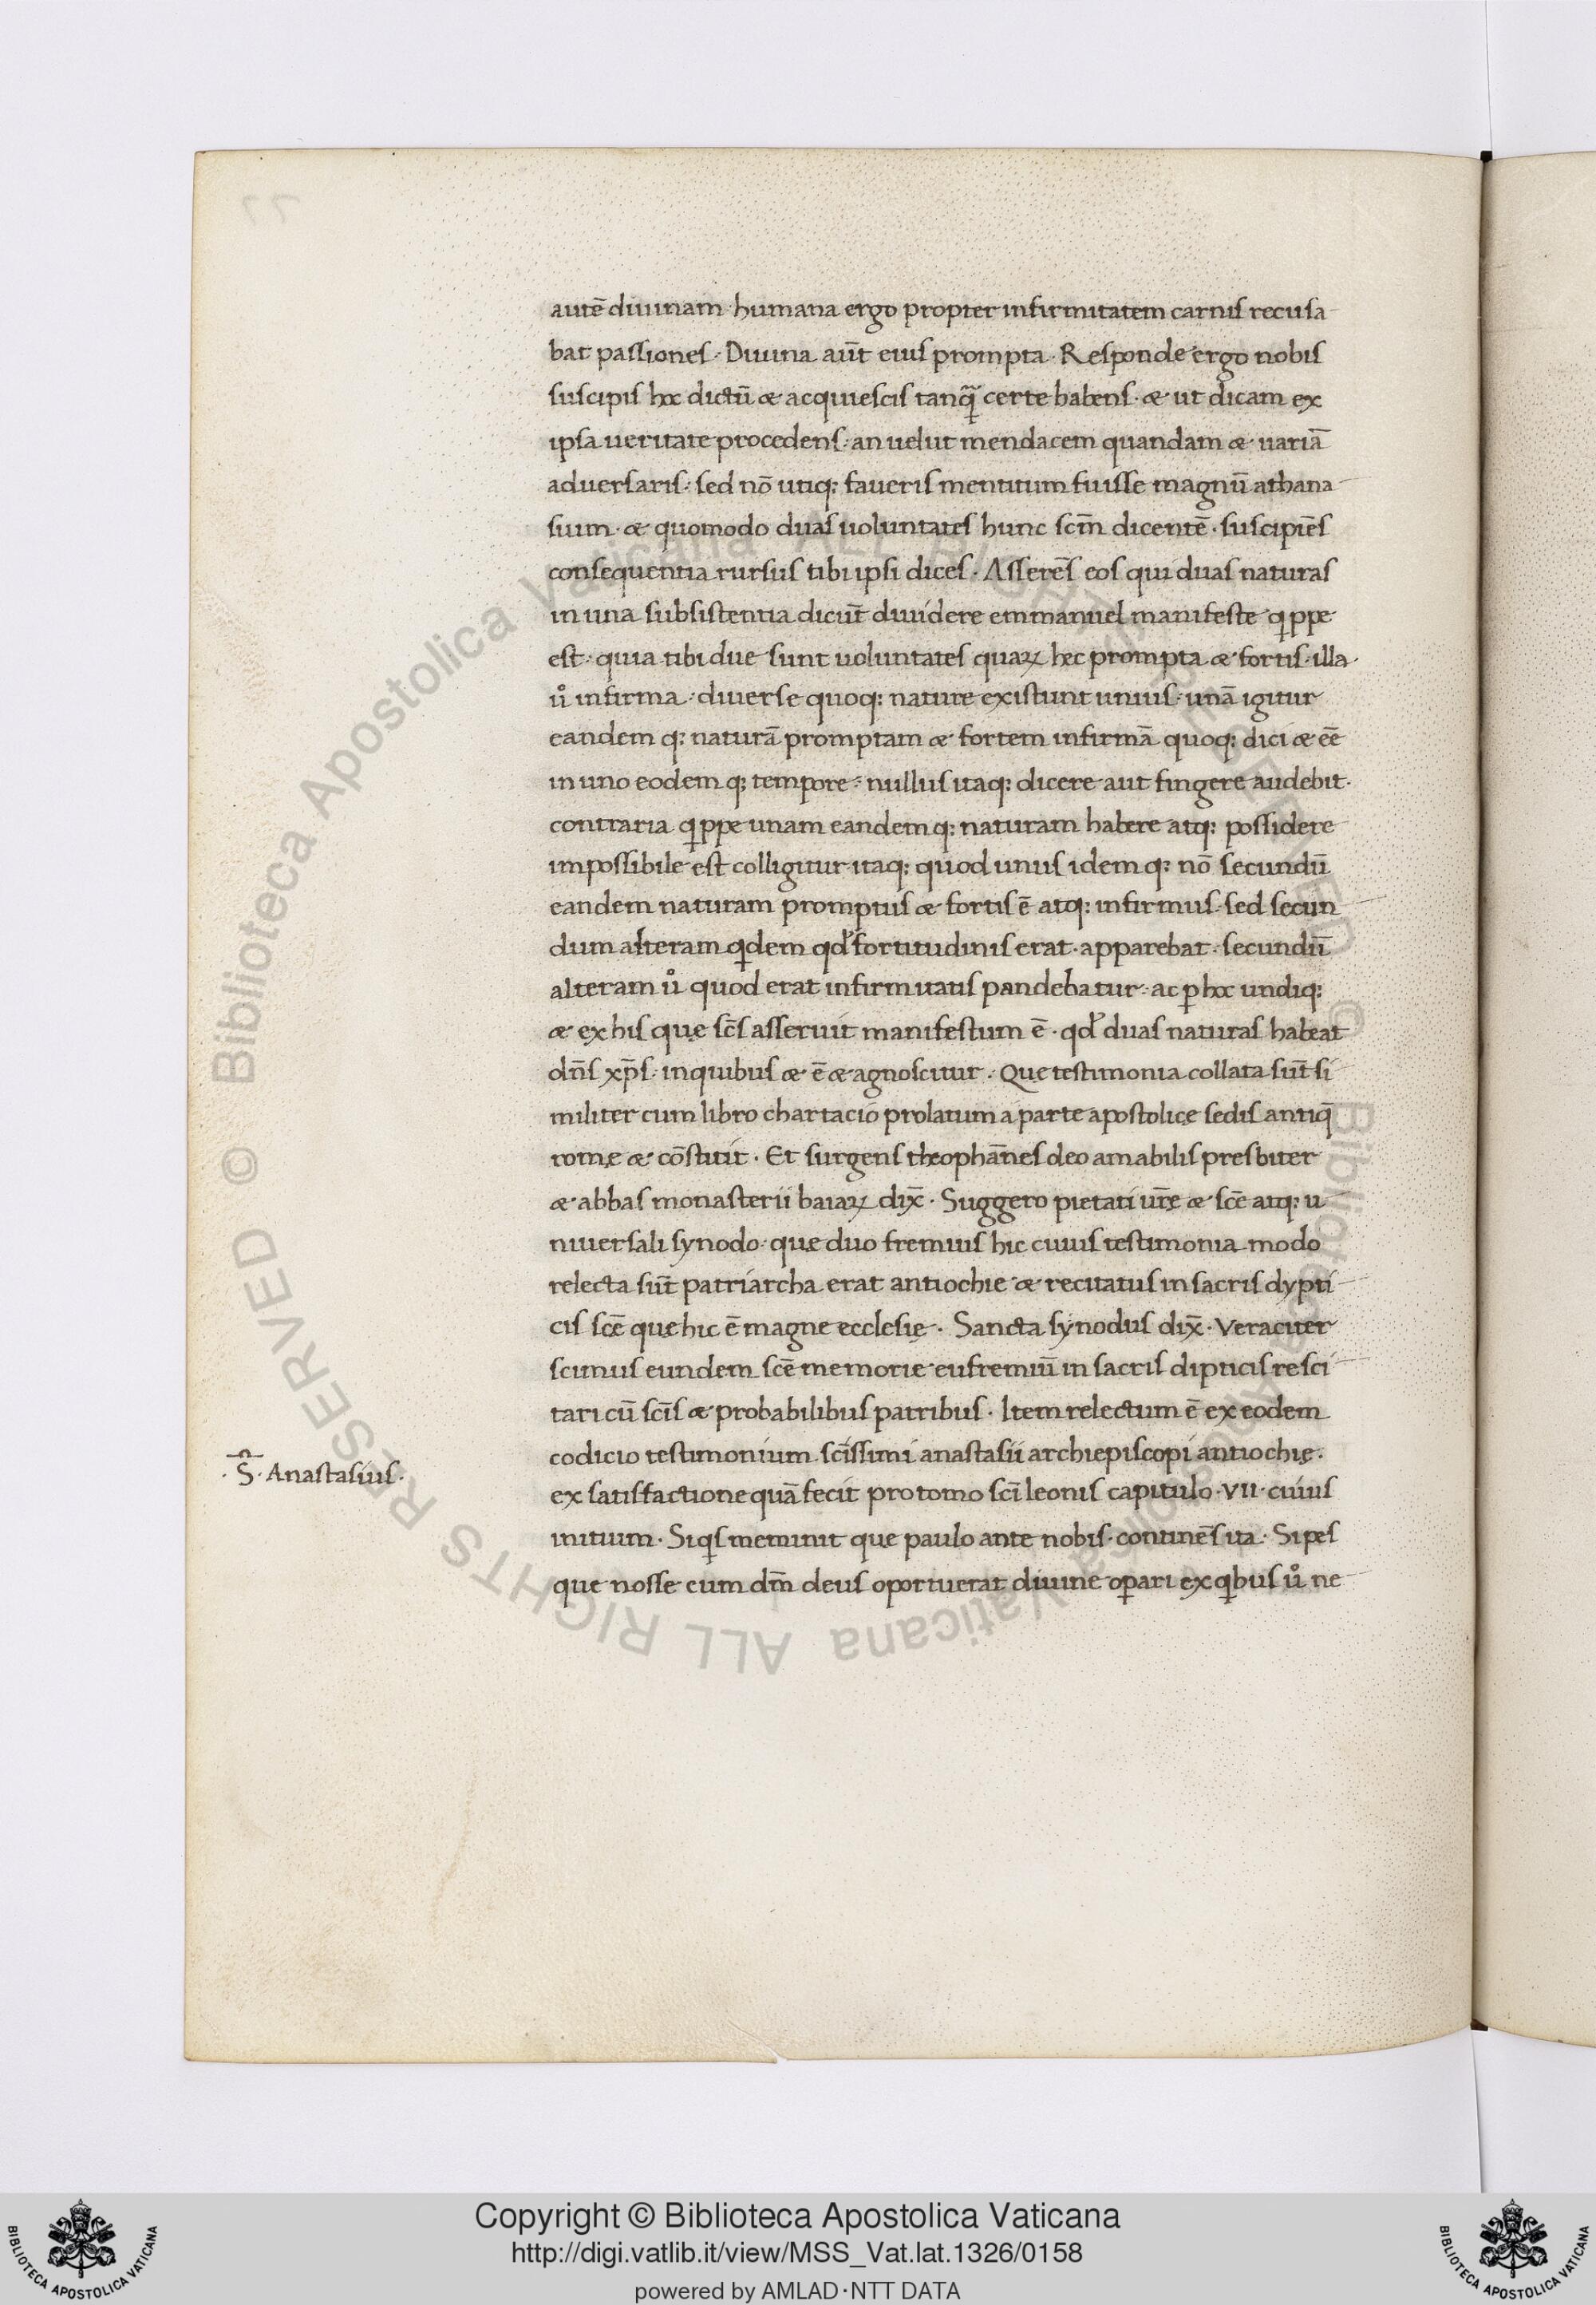 autē diuinam humana ergo propter infirmitatem carnis recusa
bat passiones · Diuina aūt eius prompta · Responde ergo nobis
suscipis hoc dictū æ acquiescis tanquā certe habens · æ ut dicam ex
ipsa ueritate procedens · an uelut mendacem quandam æ uariā
aduersaris · sed nō utiq; faueris mentitum fuisse magnū athana
sium · æ quomodo duas uoluntates hunc scm̄ dicentē · suscipiēs
consequentia rursus tibi ipsi dices · Asserēs eos qui duas naturas
in una subsistentia dicūt diuidere emmanuel manifeste qippe
est · quia tibi due sunt uoluntates quaꝝ hec prompta æ fortis · illa
u̇ infirma · diuerse quoq; nature existunt unius · unā igitur
eandem q; naturā promptam æ fortem infirmā quoq; dici æ eē
in uno eodem q; tempore · nullus itaq; dicere aut fingere audebit ·
contraria qippe unam eandem q; naturam habere atq; possidere
impossibile est colligitur itaq; quod unus idem q; nō secundū
eandem naturam promptus æ fortis ē atq; infirmus · sed secun
dum alteram qidem qd' fortitudinis erat · apparebat · secundū
alteram u̇ quod erat infirmitatis pandebatur · ac ꝑ hoc undiq;
æ ex his quę scs̄ asseruit manifestum ē · qd' duas naturas habeat
dn̄s xp̄s · in quibus æ ē æ agnoscitur · Quę testimonia collata sūt si
militer cum libro chartacio prolatum a parte apostolicę sedis antiq̄
romę æ cōstitit · Et surgens theophānes deo amabilis presbiter
æ abbas monasterii baiaꝝ dix̄ · Suggero pietati ur̄ę æ scē atq; u
niuersali synodo · quę duo fremius hic cuius testimonia modo
relecta sūt patriarcha erat antiochie æ recitatus in sacris dypti
cis scē que hic ē magne ecclesię · Sancta synodus dix̄ · Veraciter
scimus eundem scē memorie eufremiū in sacris dipticis resci
tari cū scīs æ probabilibus patribus · Item relectum ē ex eodem
codicio testimonium scīssimi anastasii archiepiscopi antiochię ·
ex satisfactione quā fecit pro tomo scī leonis capitulo · VII · cuius
initium · Siqis meminit quę paulo ante nobis · continēs ita · Si pes
que nosse cum dm̄ deus oportuerat diuine oꝑari ex qibus u̇ ne
· S̄ · Anastasius ·
Copyright © Biblioteca Apostolica Vaticana
http://digi.vatlib.it/view/MSS_Vat.lat.1326/0158
powered by AMLAD·NTT DATA
© Biblioteca Apostolica Vaticana ALL RIGHTS RESERVED
© Biblioteca Apostolica Vaticana ALL RIGHTS RESERVED
BIBLIOTECA APOSTOLICA VATICANA
BIBLIOTECA APOSTOLICA VATICANA